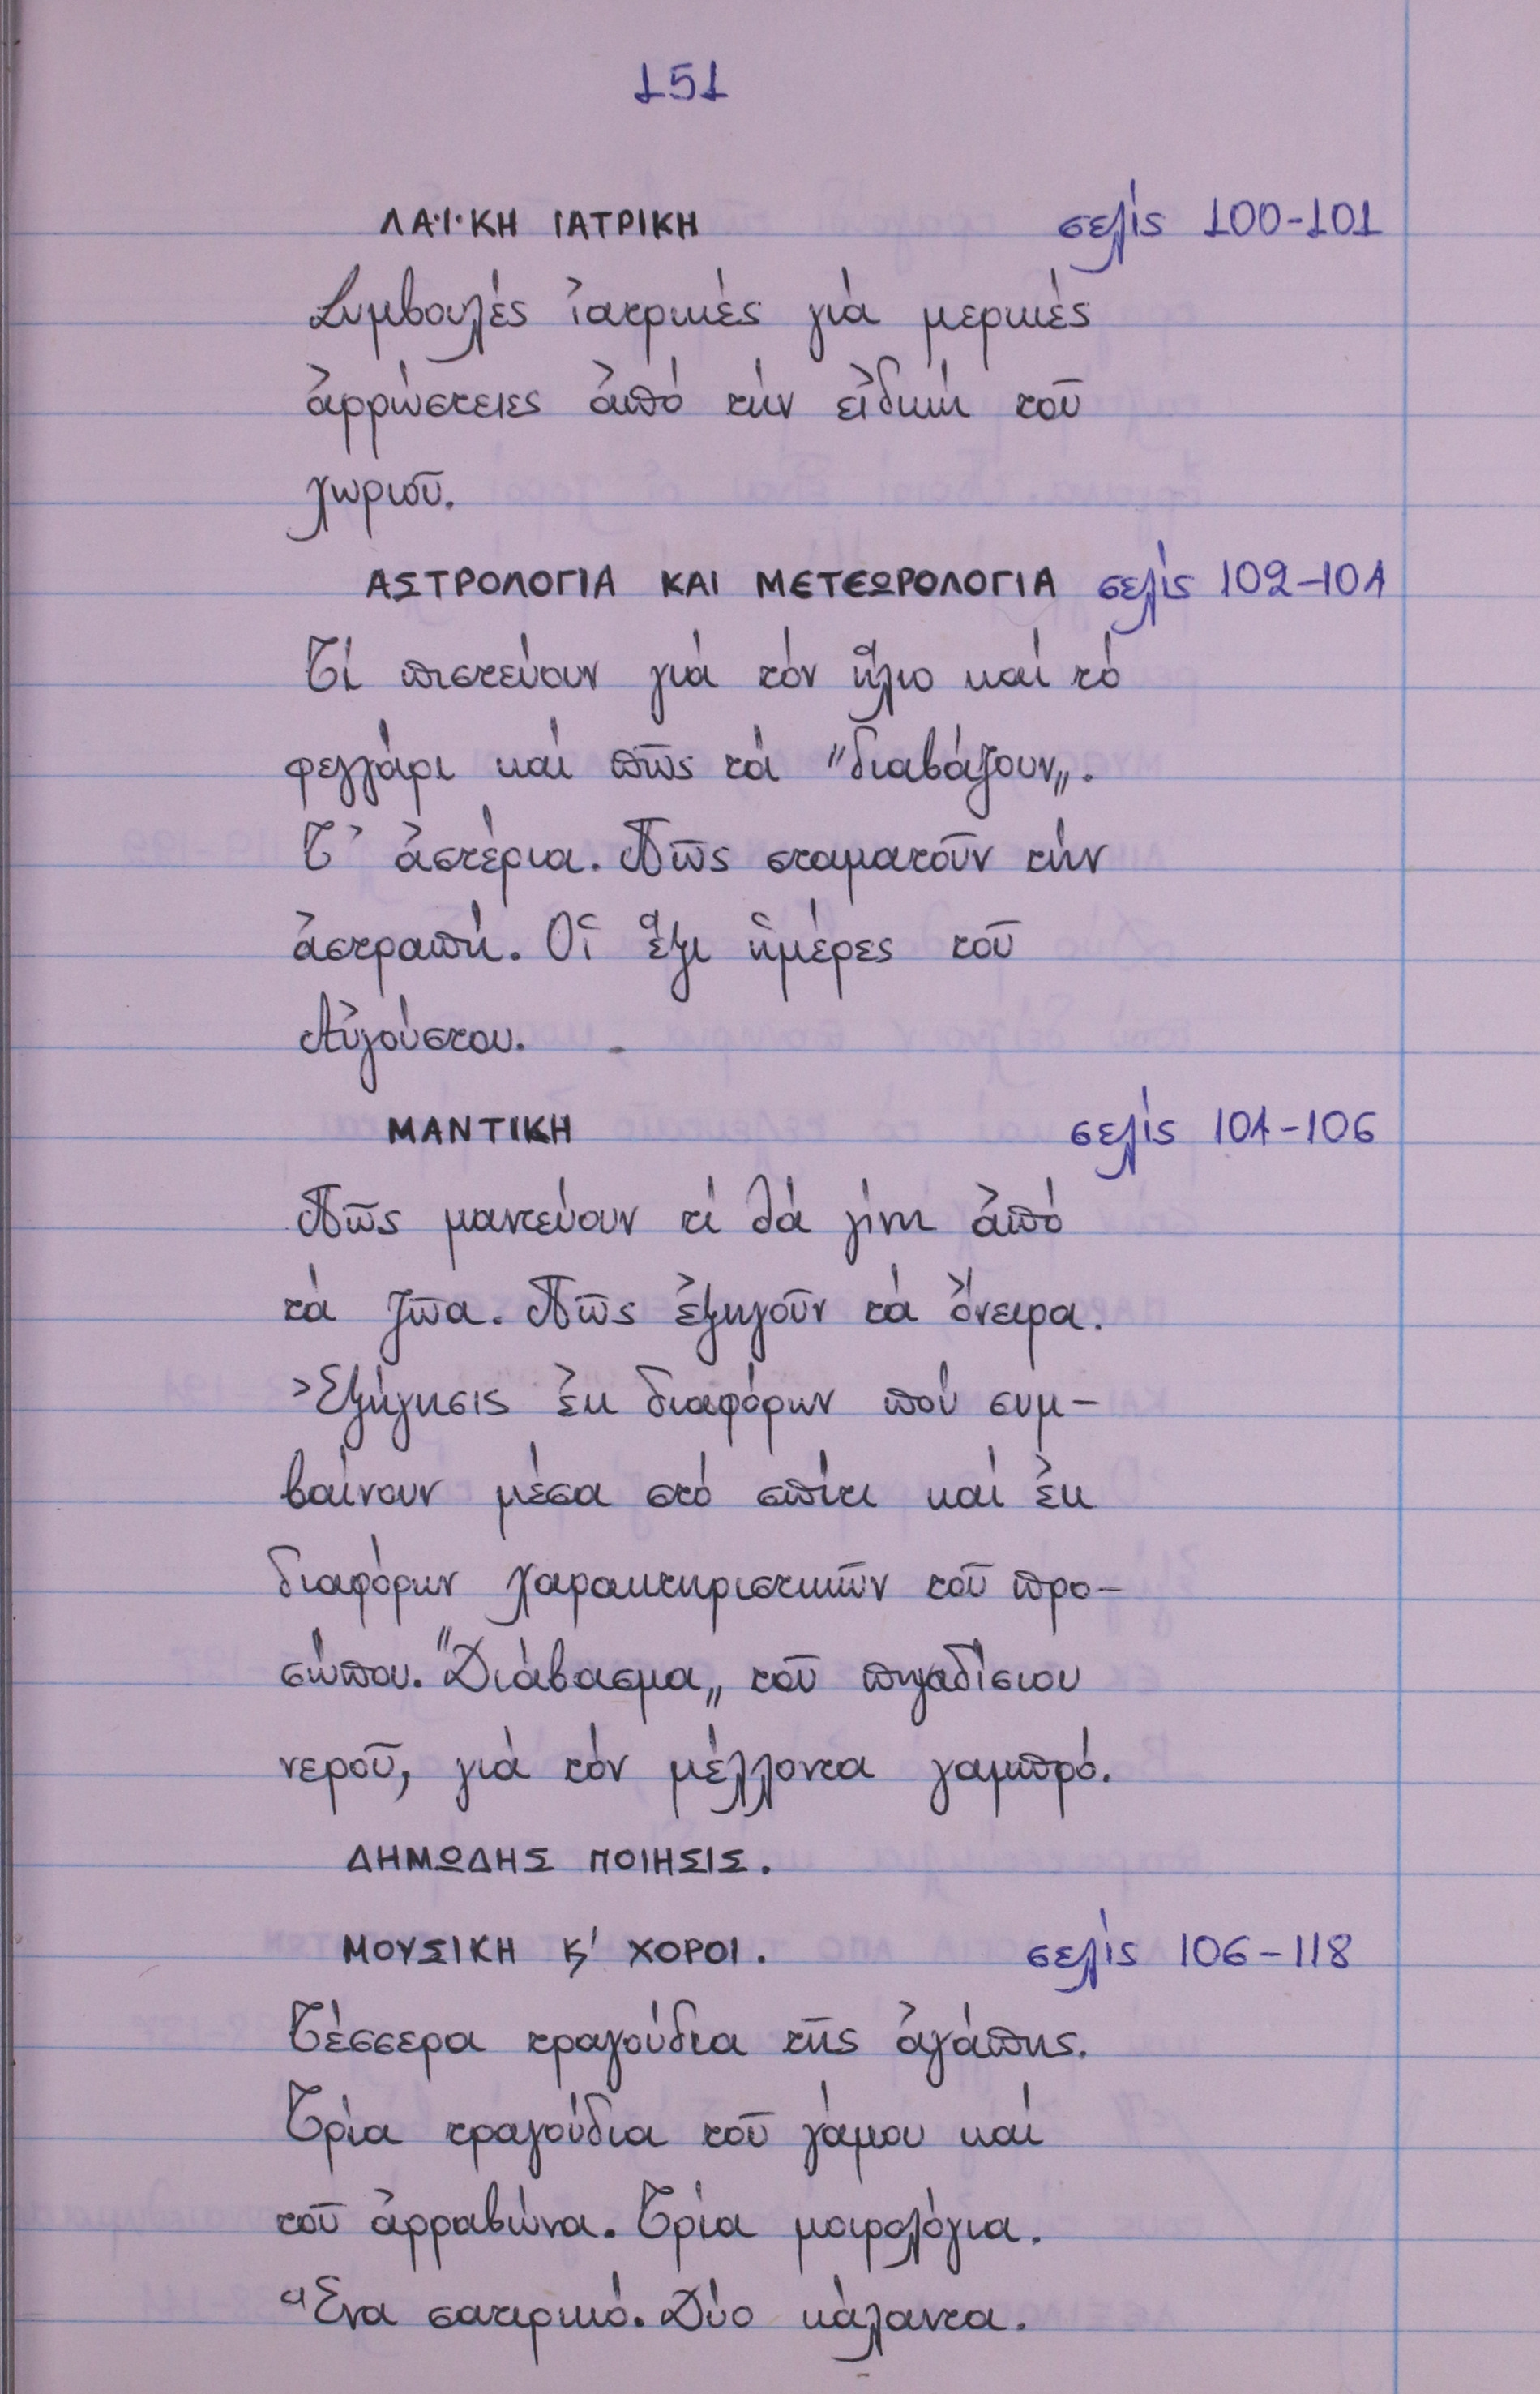 151
ΛΑ·Ι·ΚΗ ΙΑΤΡΙΚΗ σελίς 100-101
Συμβουλές ἰατρικές γιά μερικές
ἀρρώστειες ἀπό τήν εἰδική τοῦ
χωριοῦ.
ΑΣΤΡΟΛΟΓΙΑ ΚΑΙ ΜΕΤΕΩΡΟΛΟΓΙΑ σελίς 102-104
Τί πιστεύουν γιά τόν ἥλιο καί τό
φεγγάρι καί πῶς τά "διαβάζουν„.
Τ' ἀστέρια. Πῶς σταματοῦν τήν
ἀστραπή. Οἱ ἕξι ἡμέρες τοῦ
Αὐγούστου.
ΜΑΝΤΙΚΗ σελίς 104-106
Πῶς μαντεύουν τί θά γίνη ἀπό
τά ζῶα. Πῶς ἐξηγοῦν τά ὄνειρα.
Ἐξήγησις ἐκ διαφόρων πού συμ-
βαίνουν μέσα στό σπίτι καί ἐκ
διαφόρων χαρακτηριστικῶν τοῦ προ-
σώπου. "Διάβασμα„ τοῦ πηγαδίσιου
νεροῦ, γιά τόν μέλλοντα γαμπρό.
ΔΗΜΩΔΗΣ ΠΟΙΗΣΙΣ.
ΜΟΥΣΙΚΗ Κ' ΧΟΡΟΙ. σελίς 106-118
Τέσσερα τραγούδια τῆς ἀγάπης.
Τρία τραγούδια τοῦ γάμου καί
τοῦ ἀρραβώνα. Τρία μοιρολόγια.
Ἕνα σατιρικό. Δύο κάλαντα.